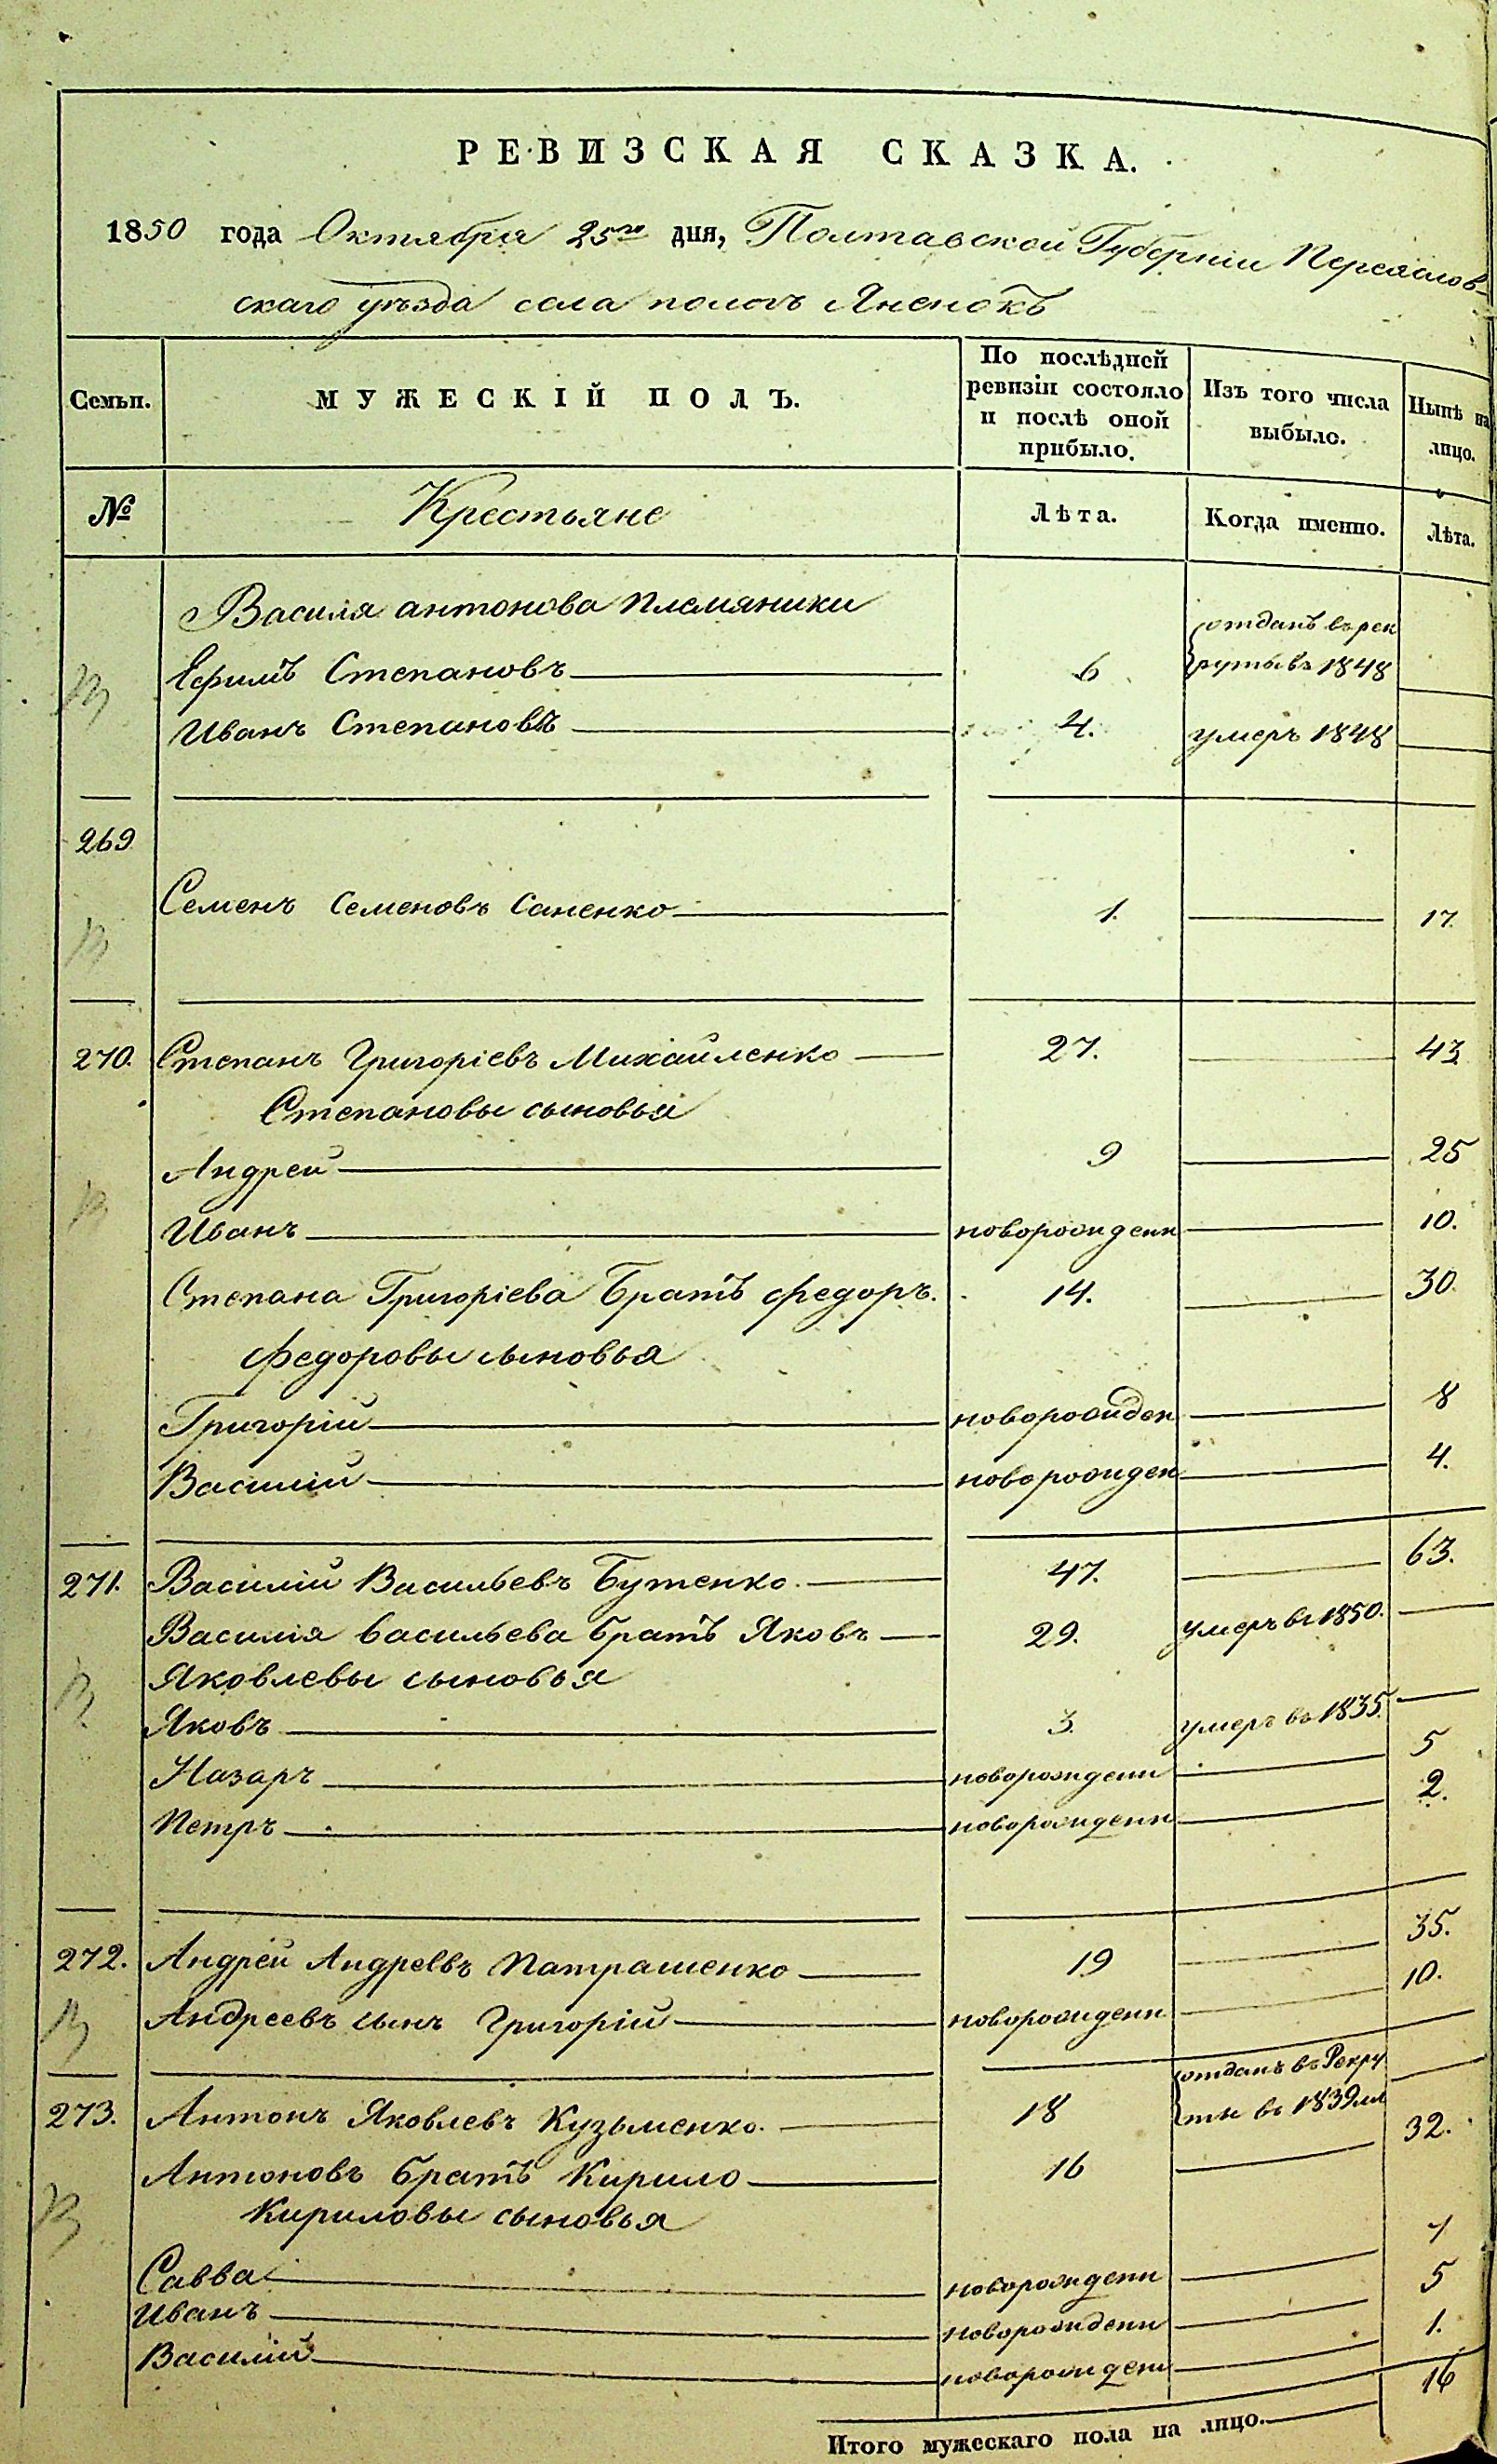 РЕВИЗСКАЯ СКАЗКА.
1850 года Октября 25го дня, Полтавской Губерніи Переяслов-
скаго уѣзда села Яненокъ
Семьи.
МУЖЕСКІЙ ПОЛЪ.
По послѣдней
ревизіи состояло
и послѣ оной
прибыло.
Изъ того числа
выбыло.
Нынѣ на
лицо.
№
Крестьяне
Лѣта.
Когда именно.
Лѣта.
Василя антонова племяники
отданъ въ рек
Ефимъ Степановъ 6 рутывъ 1848
Иванъ Степановъ 4. умеръ 1848
269
Семенъ Семеновъ Саненко 1. 17.
270. Степанъ Григоріевъ Михайленко 27. 43
Степановы сыновья
Андрей 9 25
Иванъ новорожденн 10.
Степана Григоріева Братъ федоръ. 14. 30.
федоровы сыновья
Григорій новорожден 8
Василій новорожден 4.
271. Василій Васильевъ Бутенко. 47. 63.
Василія Васильева братъ Яковъ 29. умеръ въ 1850.
Яковлевы сыновья
Яковъ 3. умеръ въ 1835.
Назаръ новорожденн 5
Петръ новорожденн 2.
272. Андрей Андреевъ Патрашенко 19 35.
Андреевъ сынъ Григорій новорожденн 10.
отданъ въ Рекру
273. Антонъ Яковлевъ Кузьменко. 18 ты въ 1839мъ
Антоновъ братъ Кирило 16 32.
Кириловы сыновья
Савва новорожденн 7
Иванъ новорожденн 5
Василій новорожден 1.
Итого мужескаго пола на лицо. 16